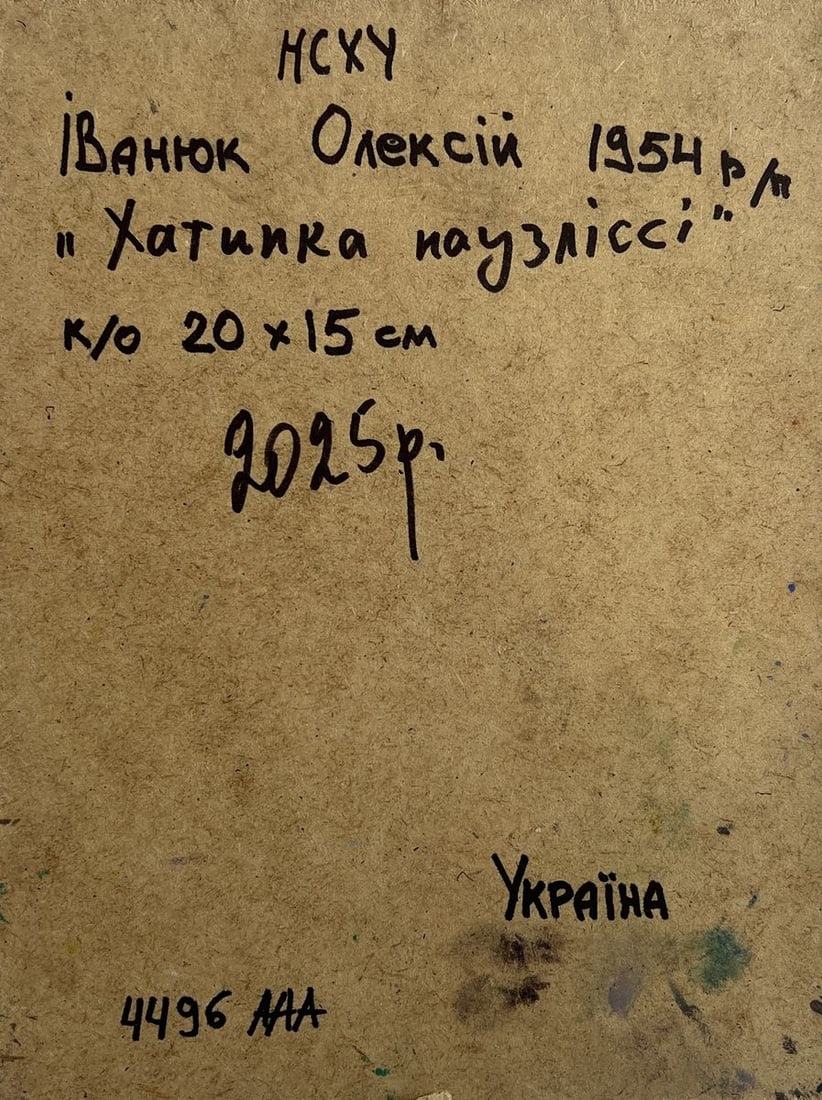 НСХУ
Іванюк Олексій 1954 р/н
"Хатинка наузліссі"
к/о 20 х 15 см
2025р.
Україна
4496 ААА